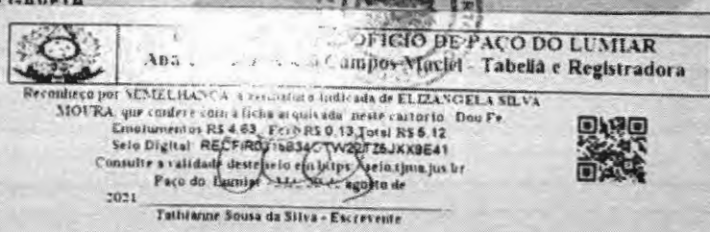 OFICIO DE PAÇO DO LUMIAR
Campos Maciel - Tabeliã e Registradora
Reconheço por SEMELHANÇA a assinatura indicada de ELIZANGELA SILVA
MOURA, que confere com a ficha arquivada neste cartorio. Dou Fe.
Emolumentos R$ 4,63 R$ 0,13 Total R$ 5,12
Selo Digital:
Consulte a validade deste selo em https selo.tjma.jus.br
Paço do Lumiar agosto de
2021
Tathianne Sousa da Silva - Escrevente